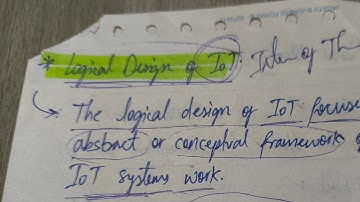 * Logical Design of IoT: Inter of Th
The logical design of IoT focuse
abstract or conceptual framework of
IoT systems work.